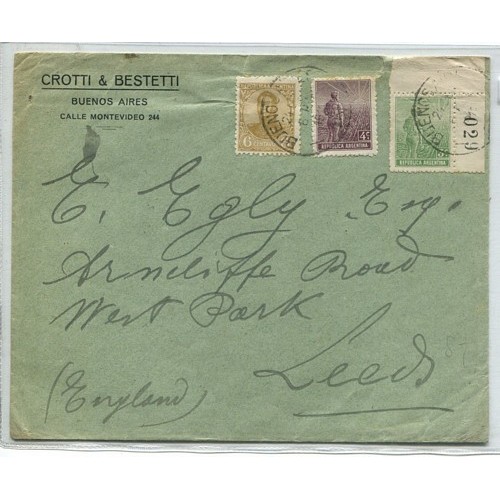 CROTTI & BESTETTI
BUENOS AIRES
CALLE MONTEVIDEO 244
6 CENTAVOS
4c
REPUBLICA ARGENTINA
REPUBLICA ARGENTINA
029
BUENOS
BUENOS
E. Egly Esq.
Arncliffe Road
West Park
Leeds
(England)